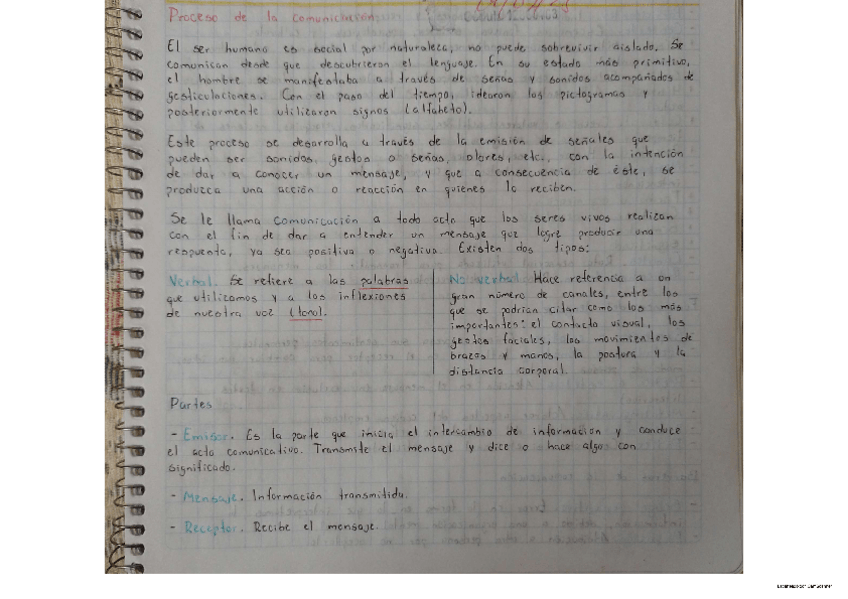 Proceso de la comunicación.
El ser humano es social por naturaleza, no puede sobrevivir aislado. Se
comunican desde que descubrieron el lenguaje. En su estado más primitivo,
el hombre se manifestaba a través de señas y sonidos acompañados de
gesticulaciones. Con el paso del tiempo, idearon los pictogramas y
posteriormente utilizaron signos (alfabeto).
Este proceso se desarrolla a través de la emisión de señales que
pueden ser sonidos, gestos o señas, olores, etc., con la intención
de dar a conocer un mensaje, y que a consecuencia de éste, se
produzca una acción o reacción en quienes lo reciben.
Se le llama comunicación a todo acto que los seres vivos realizan
con el fin de dar a entender un mensaje que logre producir una
respuesta, ya sea positiva o negativa. Existen dos tipos:
Verbal. Se refiere a las palabras
que utilizamos y a los inflexiones
de nuestra voz (tono).
No verbal. Hace referencia a un
gran número de canales, entre los
que se podrían citar como los más
importantes: el contacto visual, los
gestos faciales, los movimientos de
brazos y manos, la postura y la
distancia corporal.
Partes
- Emisor. Es la parte que inicia el intercambio de información y conduce
el acto comunicativo. Transmite el mensaje y dice o hace algo con
significado.
- Mensaje. Información transmitida.
- Receptor. Recibe el mensaje.